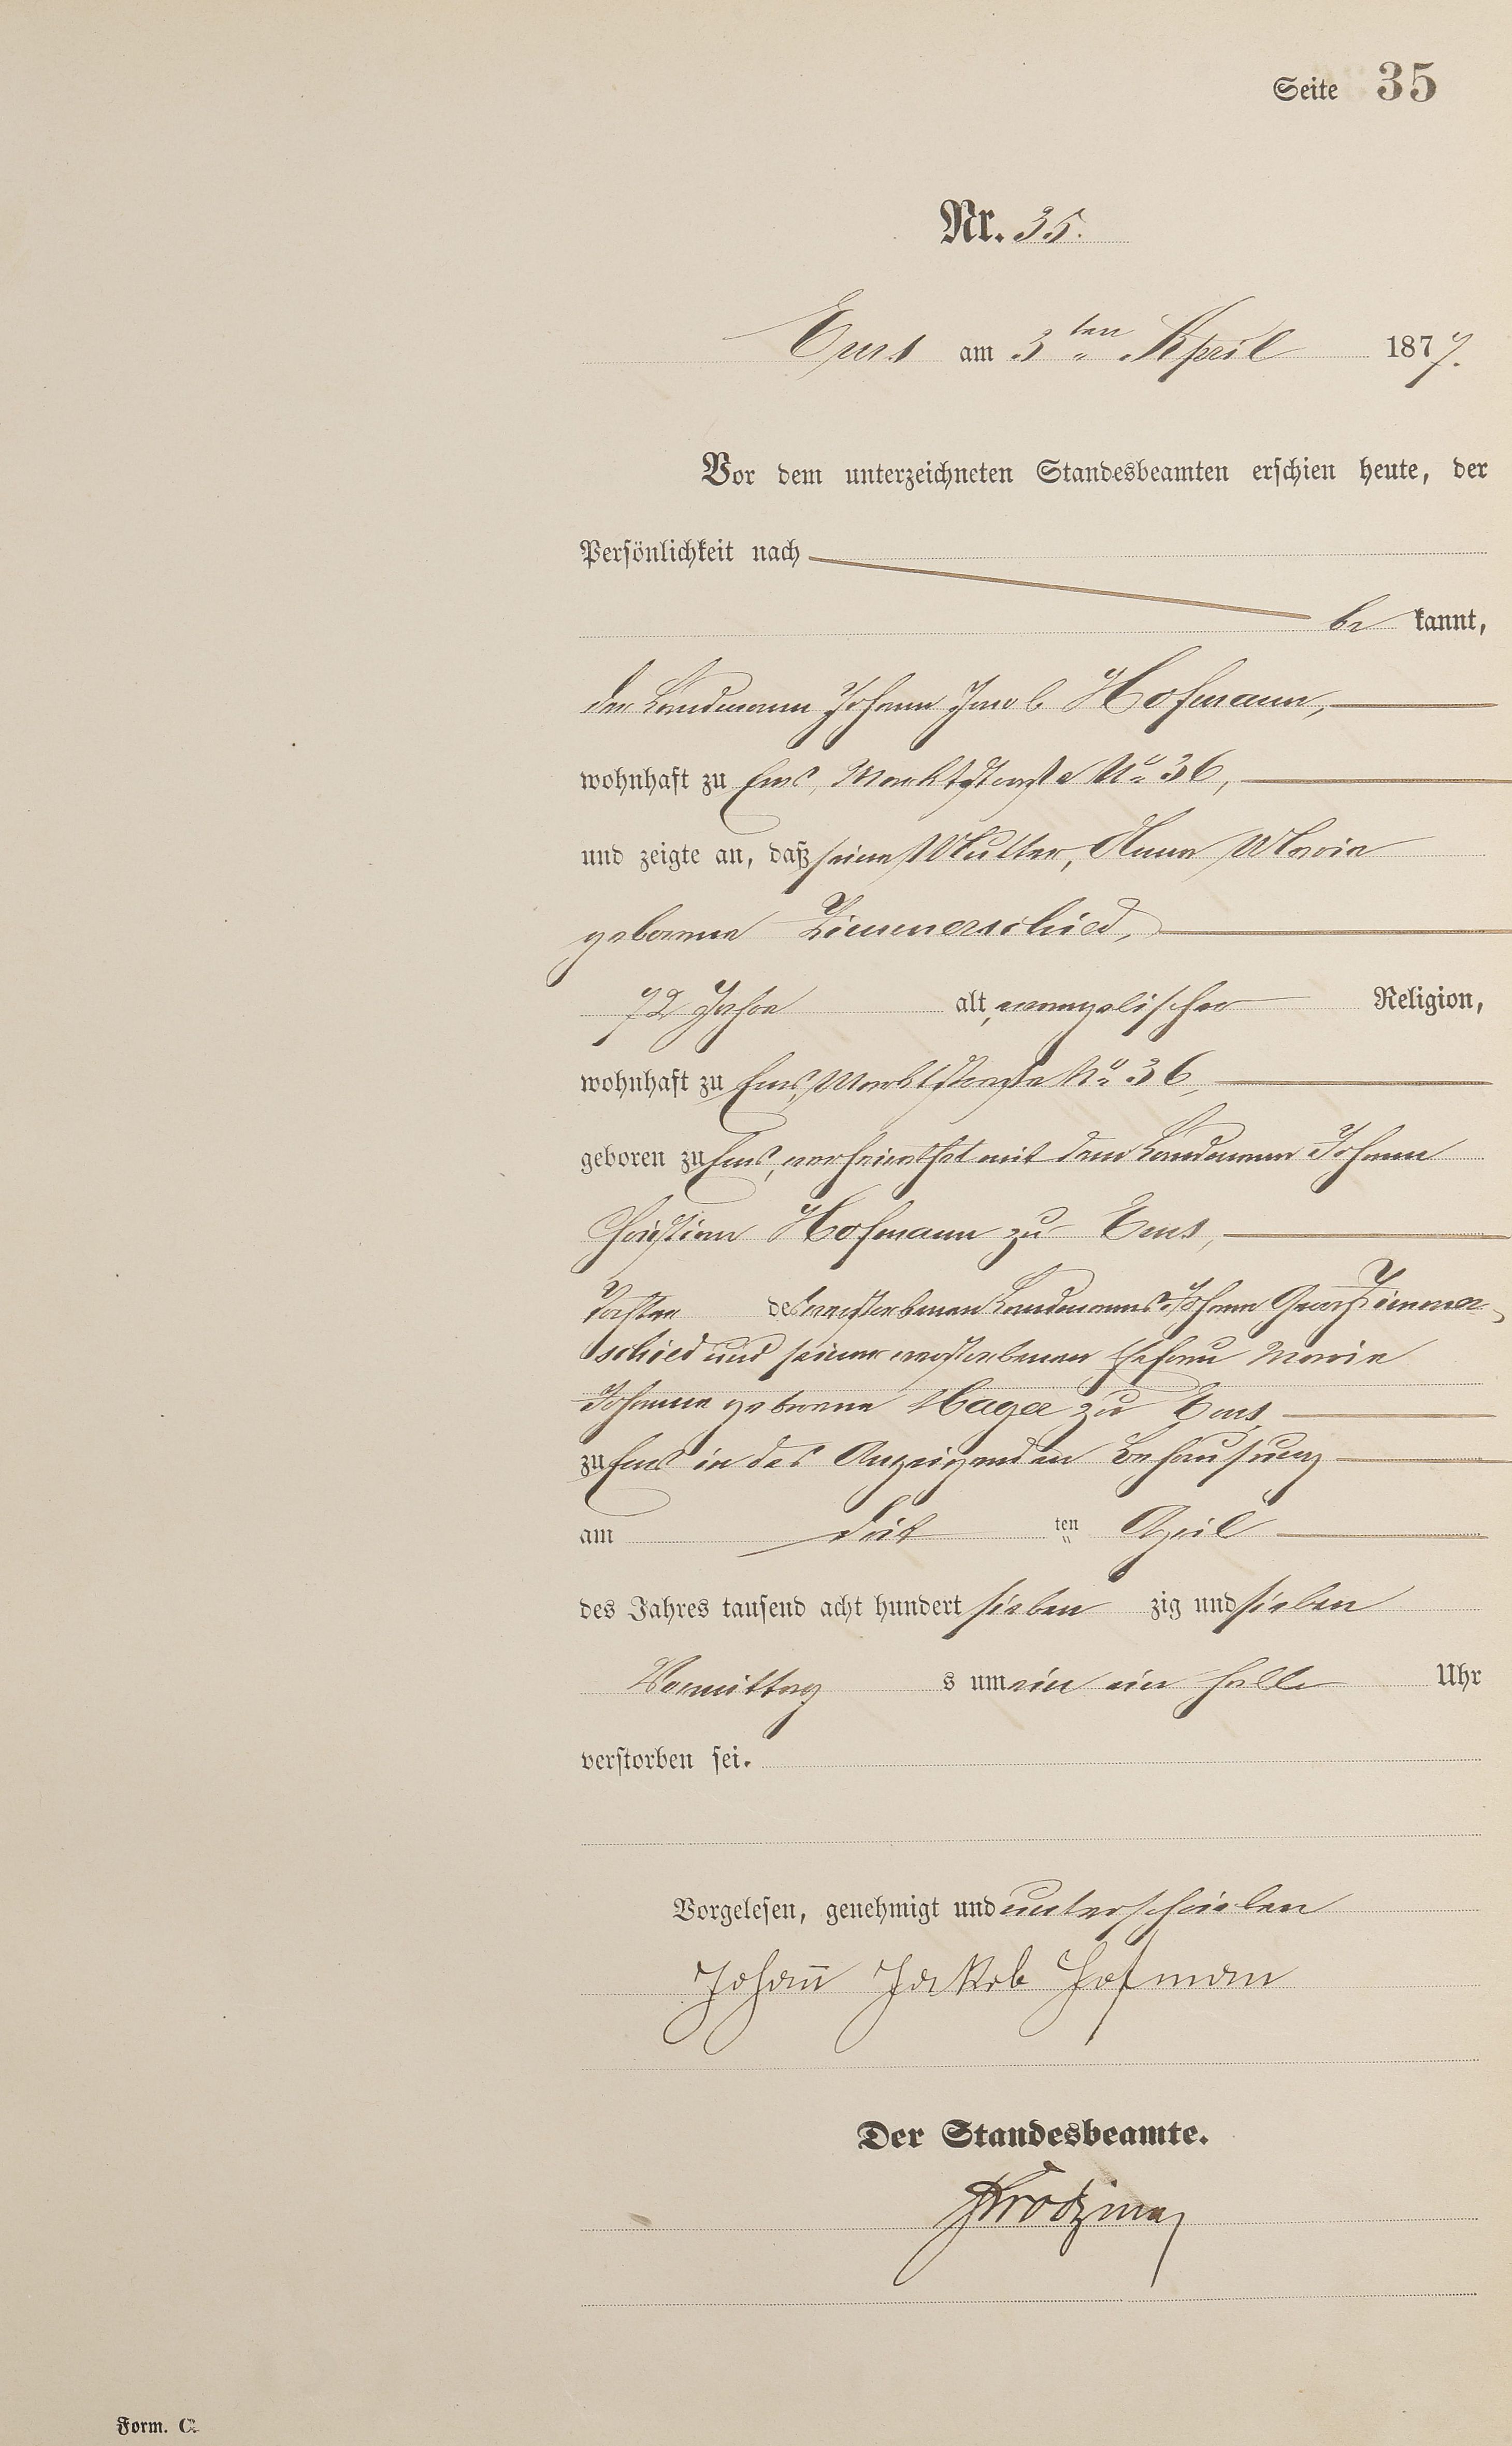 Seite 35
Nr. 35.
Ems am 3ten April 1877.
Vor dem unterzeichneten Standesbeamten erschien heute, der
Persönlichkeit nach
be kannt,
der Landmann Johann Jacob Hofmann,
wohnhaft zu Ems, Marktstraße No 36,
und zeigte an, daß seine Mutter, Anna Maria
geborene Zimmerschied,
72 Jahre alt, evangelischer Religion,
wohnhaft zu Ems, Marktstraße No 36,
geboren zu Ems, verheirathet mit dem Landmann Johann
Christian Hofmann zu Ems,
Tochter des verstorbenen Landmanns Johann Georg Zimmer-
schied und seiner verstorbenen Ehefrau Maria
Johanna geborene zu Ems
zu Ems in des Anzeigenden Behausung
am drit ten April
des Jahres tausend acht hundert sieben zig und sieben
Vormittag s um ein ein halb Uhr
verstorben sei.
Vorgelesen, genehmigt und unterschrieben
Johann Jakob Hofman
Der Standesbeamte.
Form. C.